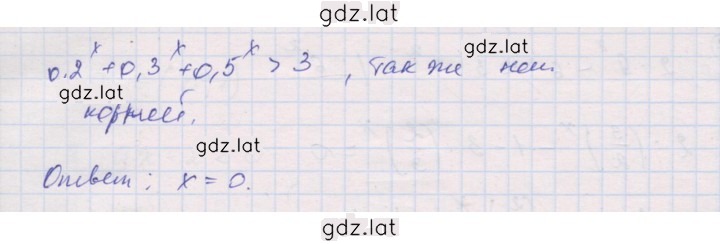 gdz.lat
0.2^x + 0,3^x + 0,5^x > 3 , также нет
gdz.lat
gdz.lat
корней.
gdz.lat
Ответ: x = 0.
gdz.lat